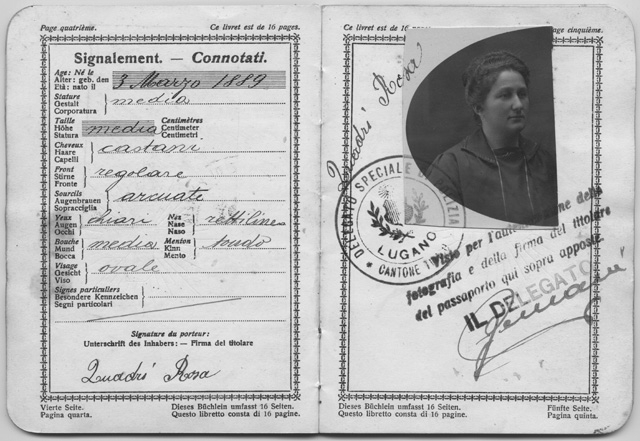 Page quatrième. Ce livret est de 16 pages.
Signalement. — Connotati.
Age: Né le
Alter: geb. den 3 Marzo 1889
Età: nato il
Stature
Gestalt media
Corporatura
Taille Centimètres
Höhe media Centimeter
Statura Centimetri
Cheveux
Haare castani
Capelli
Front
Stirne regolare
Fronte
Sourcils
Augenbrauen arcuate
Sopracciglia
Yeux Nez
Augen chiari Nase rettilineo
Occhi Naso
Bouche Menton
Mund media Kinn tondo
Bocca Mento
Visage
Gesicht ovale
Viso
Signes particuliers
Besondere Kennzeichen
Segni particolari
Signature du porteur:
Unterschrift des Inhabers: — Firma del titolare
Quadri Rosa
Vierte Seite. Dieses Büchlein umfasst 16 Seiten.
Pagina quarta. Questo libretto consta di 16 pagine.
Ce livret est de 16 pages. Page cinquième.
Quadri Rosa
DELEGATO SPECIALE DI POLIZIA
LUGANO
CANTONE
Visto per l'autenticazione della
fotografia e della firma del titolare
del passaporto qui sopra apposte
IL DELEGATO
Dieses Büchlein umfasst 16 Seiten. Fünfte Seite.
Questo libretto consta di 16 pagine. Pagina quinta.